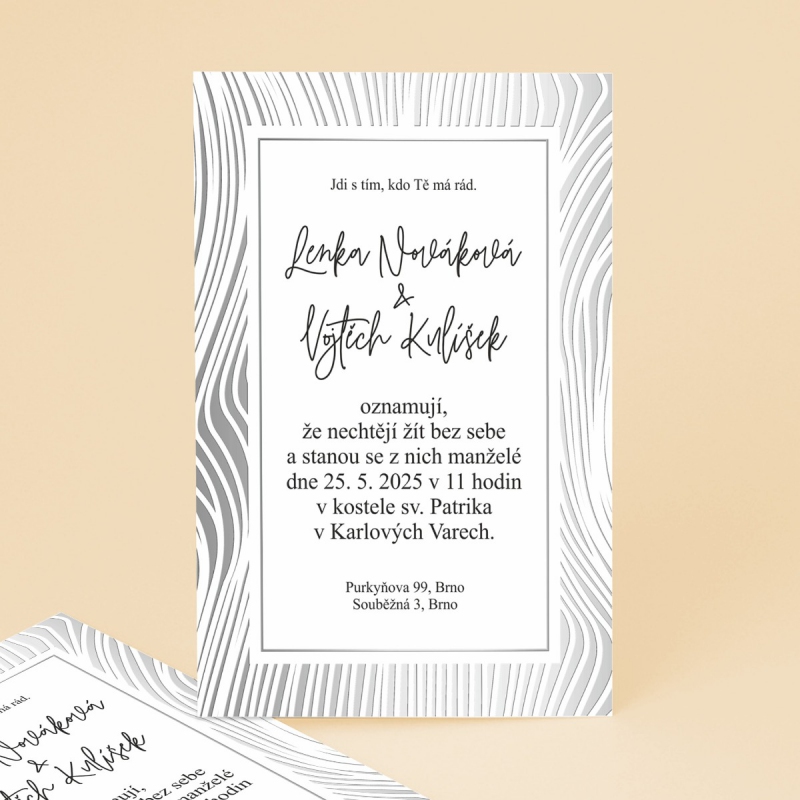 Jdi s tím, kdo Tě má rád.
Lenka Nováková
&
Vojtěch Kulíšek
oznamují,
že nechtějí žít bez sebe
a stanou se z nich manželé
dne 25. 5. 2025 v 11 hodin
v kostele sv. Patrika
v Karlových Varech.
Purkyňova 99, Brno
Souběžná 3, Brno
má rád.
Nováková
&
Kulíšek
bez sebe
manželé
hodin